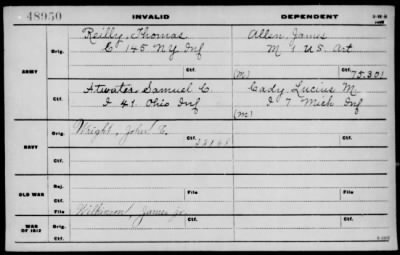 48950 INVALID DEPENDENT
ARMY
Orig. Reilly, Thomas Allen, James
C 145 NY Inf M 1 U.S. Art
(M) Ctf. 75.301
Ctf. Atwater, Samuel C. Cady, Lucius M.
I 41 Ohio Inf I 7 Mich Inf
(M)
NAVY
Orig. Wright, John C.
Ctf.
OLD WAR
Rej. File File
Ctf.
WAR OF 1812
Orig. Wilkinson, James Jr.
Ctf.